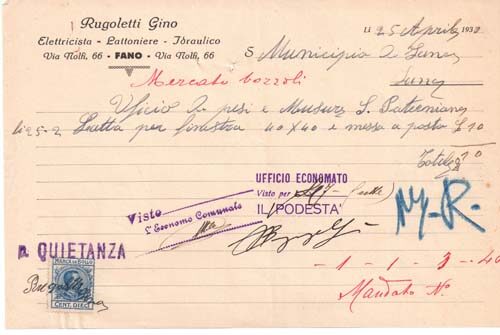 Rugoletti Gino
Elettricista - Lattoniere - Idraulico
Via Nolfi, 66 - FANO - Via Nolfi, 66
Li 25 Aprile 193
S Municipio di
Mercato bozzoli
Uficio di pesi e Mesure S. Paterniano
li 25-2 Lastra per finestra 40 x 40 e messa a posto £ 10
Totale £ 10
UFFICIO ECONOMATO
Visto per
IL PODESTA'
Visto
L'Economo Comunale
N-R-
P. QUIETANZA
MARCA DA BOLLO
CENT. DIECI
Rugoletti
- 1 - 1 - 3 - 40
Mandato N.